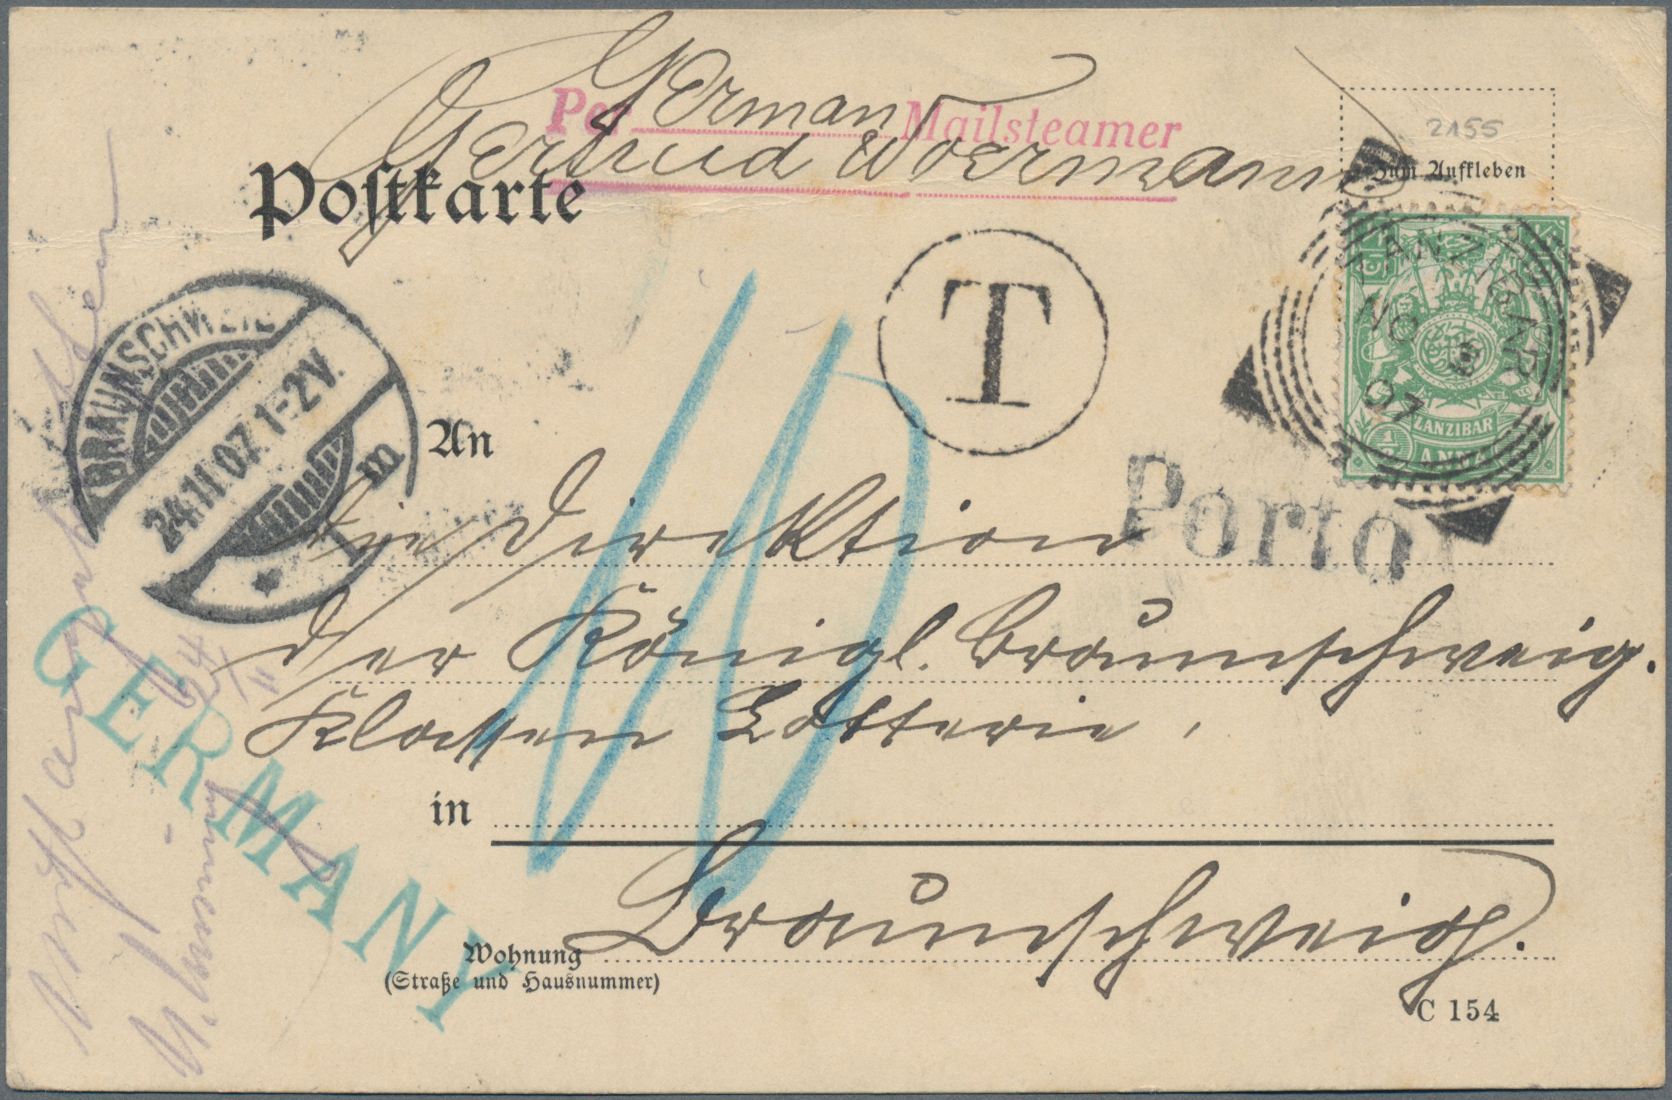 German
Per Mailsteamer
Gertrud Woermann
Postkarte
2155
Zum Aufkleben
ZANZIBAR
NO 3
07
ZANZIBAR
1/2 ANNA
T
Porto
BRAUNSCHWEIG
24.11.07. 1-2V.
* 1 m
10
An
die Direktion
der Königl. Braunschweig.
Klassen Lotterie,
in
Braunschweig.
Wohnung
(Straße und Hausnummer)
C 154
GERMANY